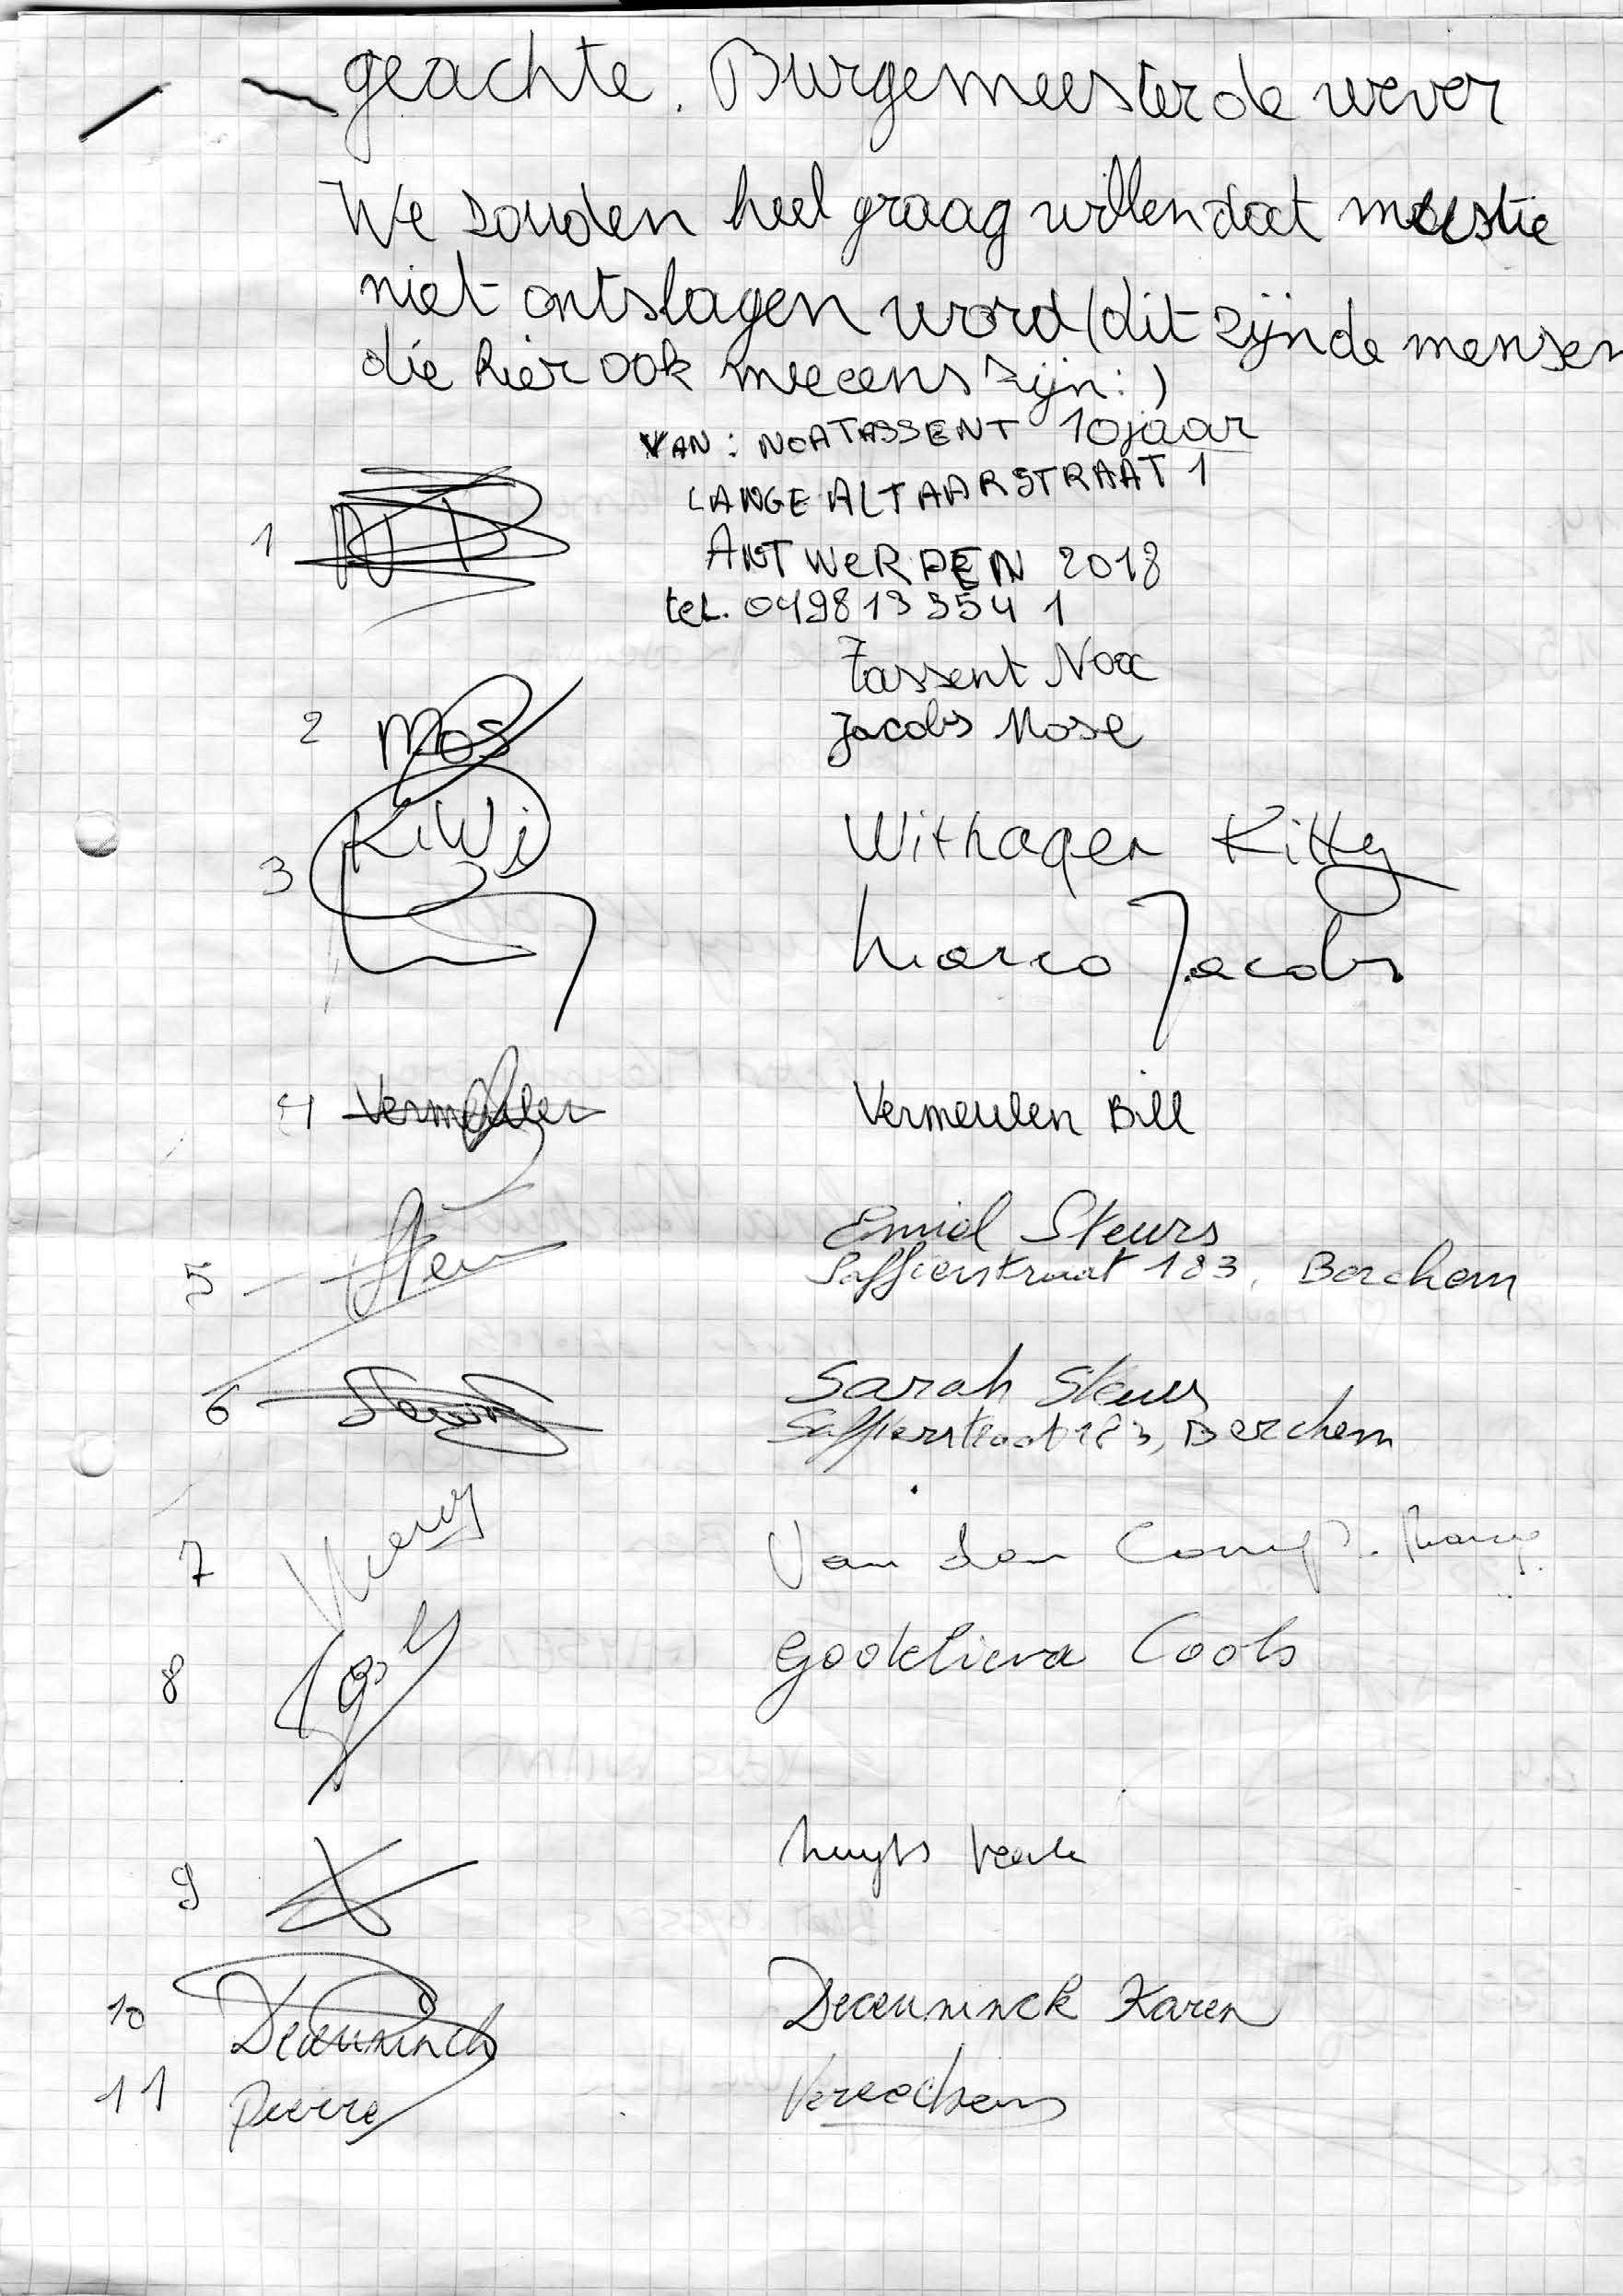 geachte. Burgemeester de wever
We zouden heel graag willen dat moustie
niet ontslagen word (dit zijn de mensen
die hier ook mee eens zijn:)
VAN: NOATASSENT 10 jaar
LANGE ALTAARSTRAAT 1
1 NT
ANTWERPEN 2018
tel. 0498133541
Tassent Noa
2 Mos Jacobs Mose
3 KiWi Withagen Kitty
Marco Jacobs
4 Vermeulen Vermeulen Bill
5 Emiel Steurs
Saffierstraat 183, Berchem
6 Sarah Steurs
Saffierstraat 183, Berchem
7 Van den
8 Godelieva Cools
9 Luyts Veerle
10 Deceuninck Deceuninck Karen
11 Pierre